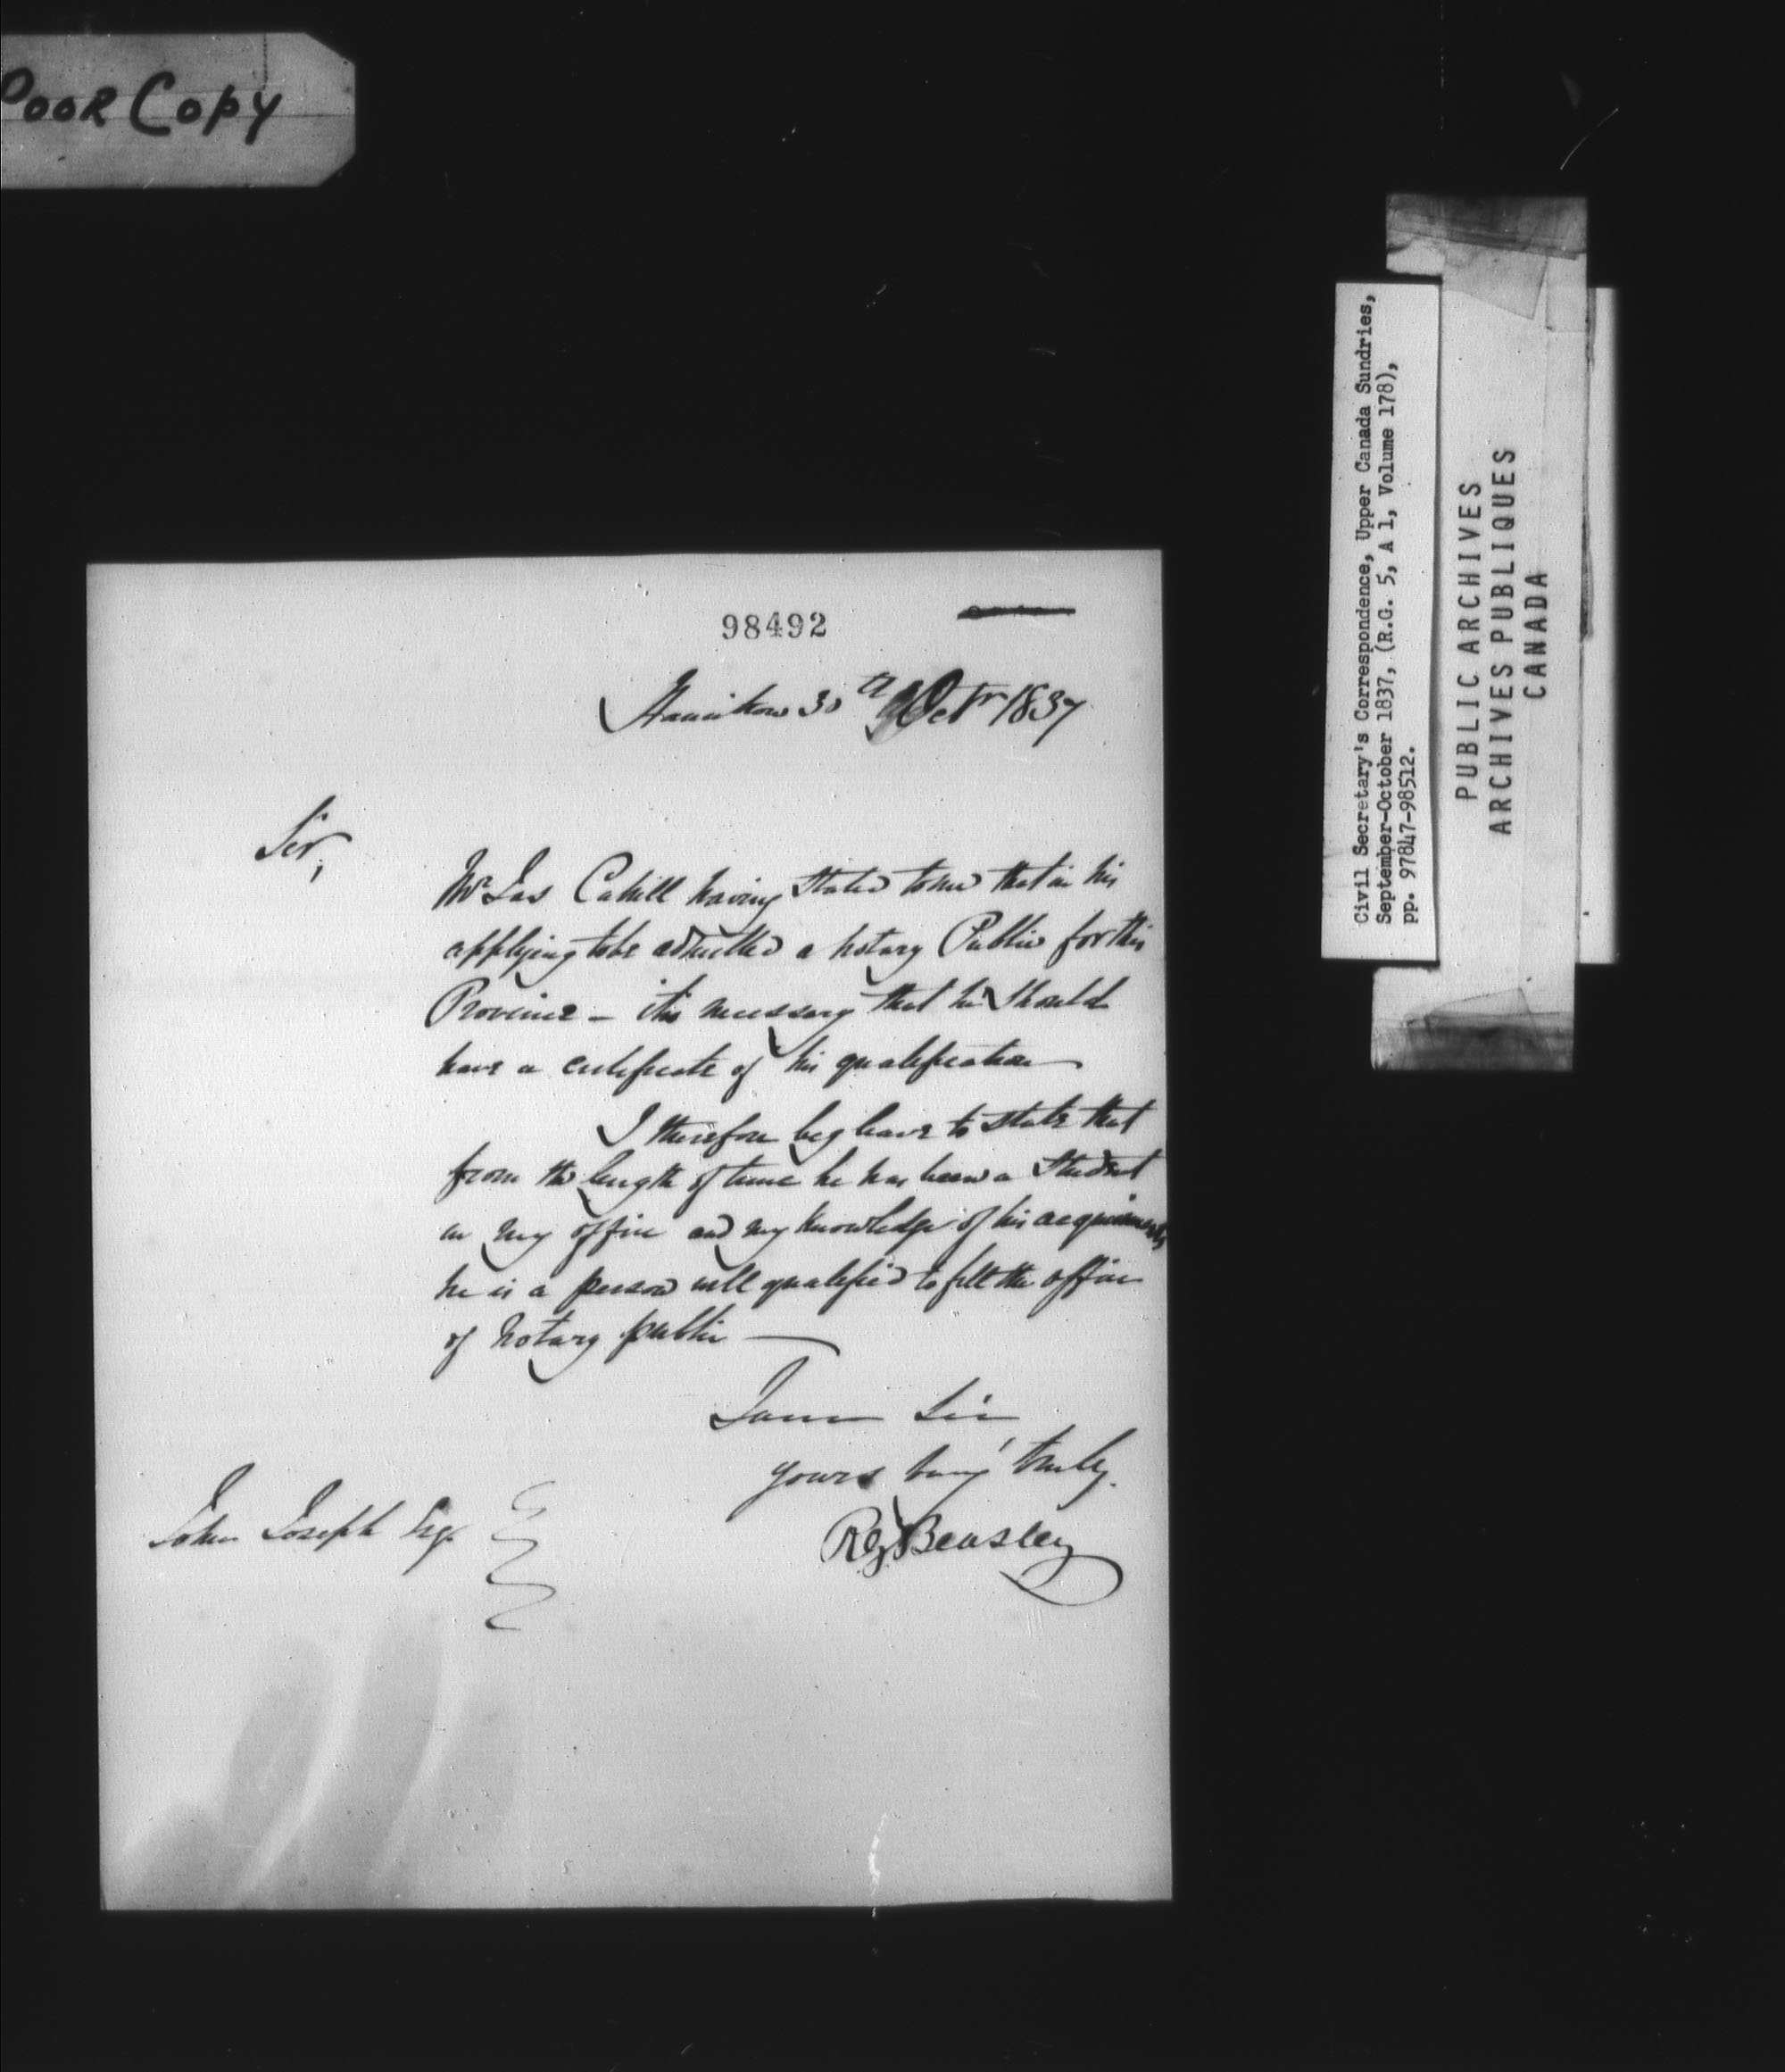 Poor Copy
98492
Hamilton 30th Octr 1837
Sir,
Mr Jas Cahill having stated to me that in his
applying to be admitted a Notary Public for this
Province – it is necessary that he should
have a certificate of his qualification
I therefore beg leave to state that
from the length of time he has been a Student
in my office and my knowledge of his acquirements
he is a person well qualified to fill the office
of Notary public —
I am Sir
yours very truly.
Beasley
John Joseph Esq.
Civil Secretary's Correspondence, Upper Canada Sundries,
September-October 1837, (R.G. 5, A 1, Volume 178),
pp. 97847-98512.
PUBLIC ARCHIVES
ARCHIVES PUBLIQUES
CANADA